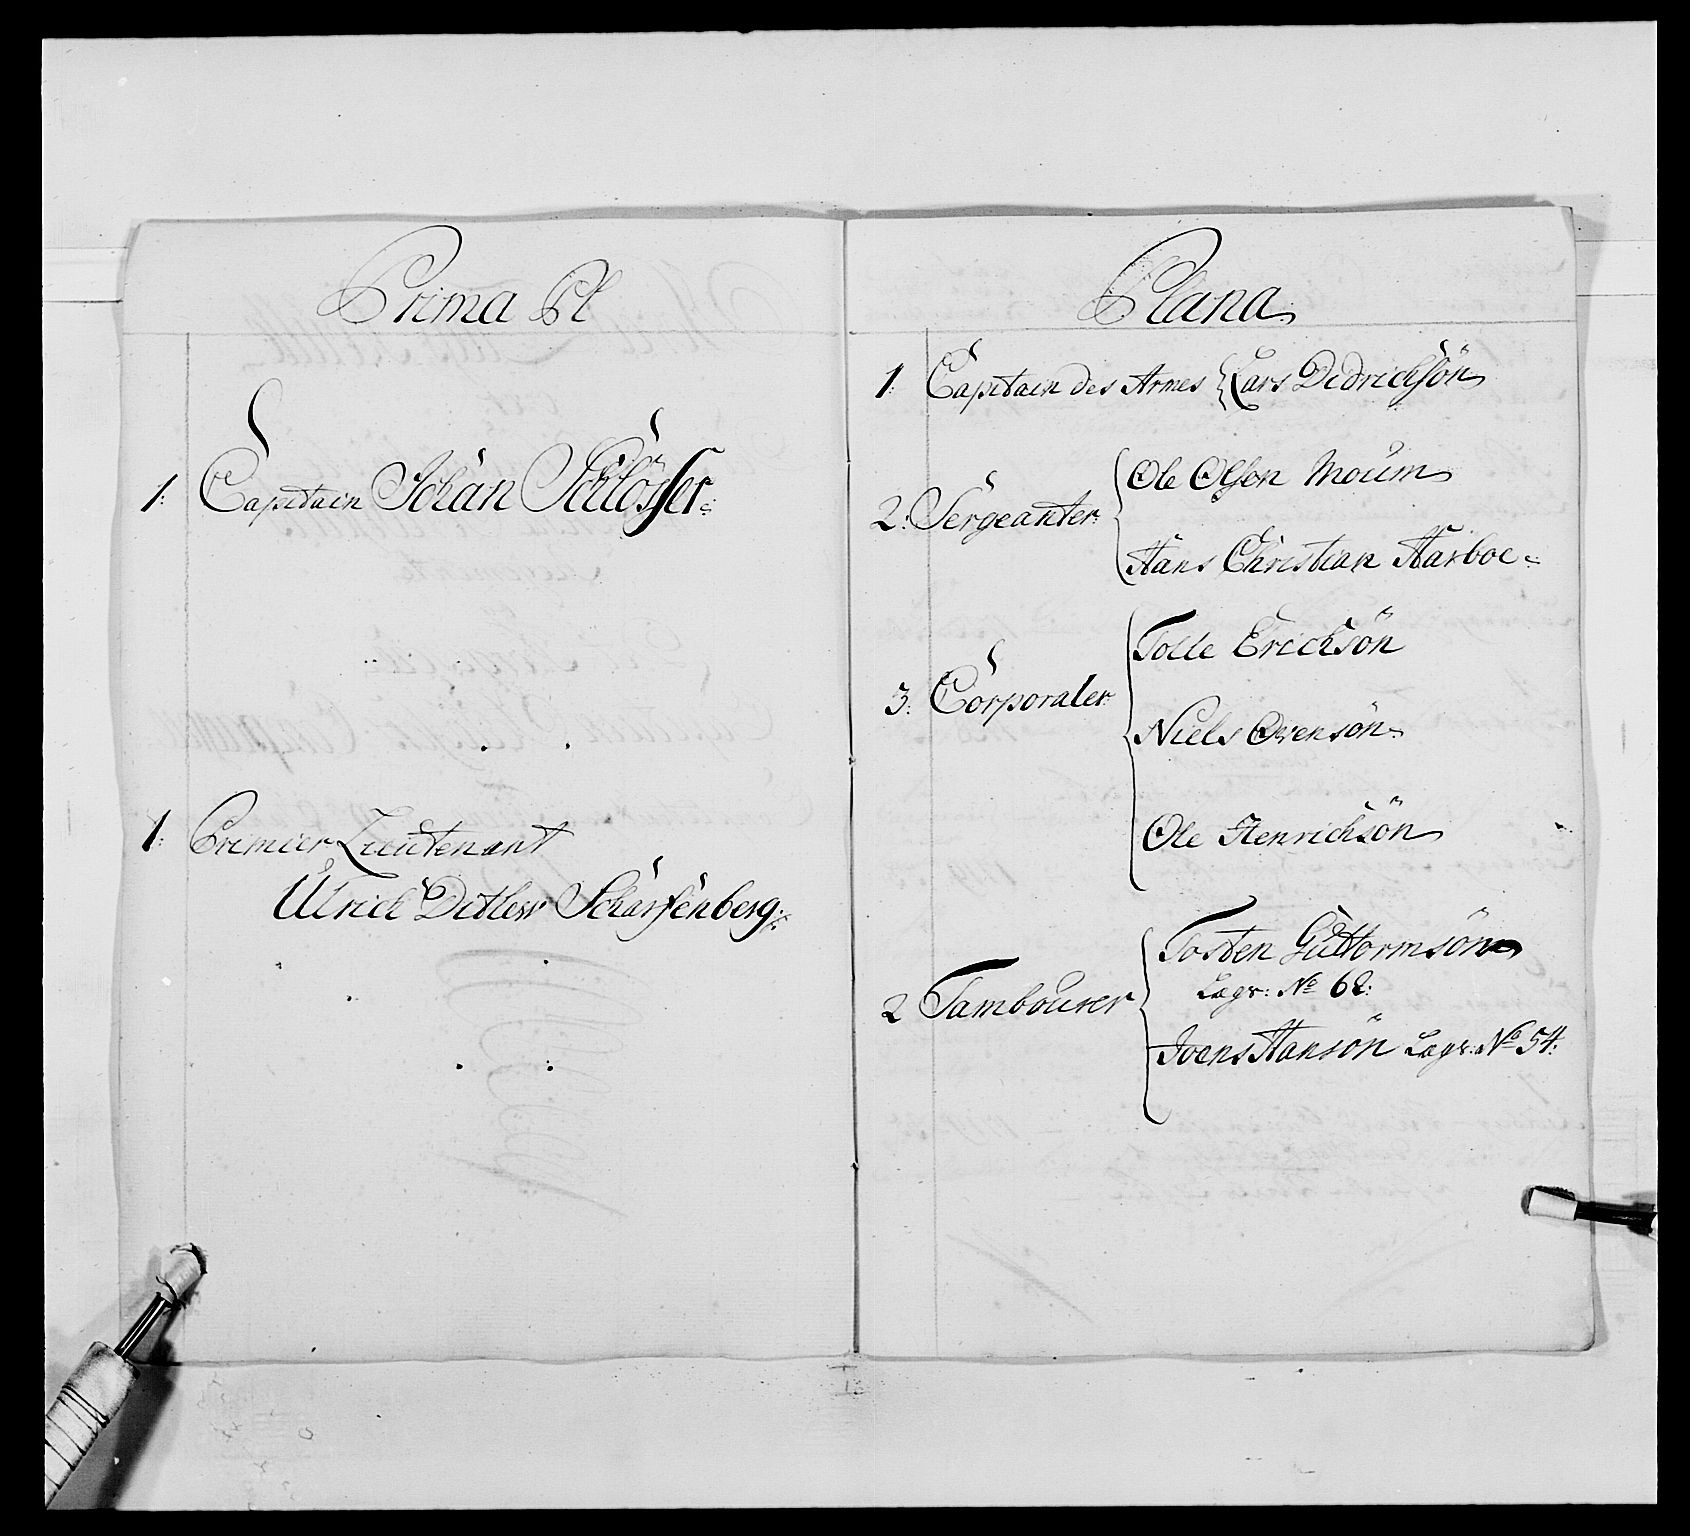 Prima Pl
1: Capitain Johan Schlösser
1: Premier Lieutenant
Ulrich Ditlew Schärffenberg
Plana
1: Capitain des Armes Lars Didrichsön
2: Sergeanter
Ole Olsen Moum
Hans Christian Harboe
3: Corporaler
Tolle Erichsön
Niels Evensön
Ole Henrichsön
2 Tambourer
Tosten Guttormsön
Lægs: No 62:
Joens Hansön Lægs: No 54: